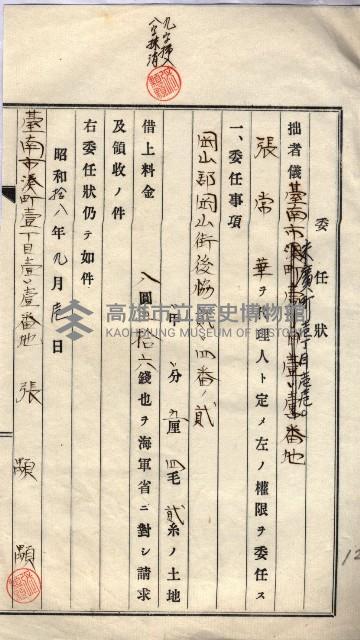 九字挿入
八字抹消
委任狀
末廣町
拙者儀臺南市湊町壹丁目壹壹番地
張常華ヲ代理人ト定メ左ノ權限ヲ委任ス
一、委任事項
岡山郡岡山街後協 四番ノ貳
甲 分九厘四毛貳糸ノ土地
借上料金八圓拾六錢也ヲ海軍省ニ對シ請求
及領收ノ件
右委任狀仍テ如件
昭和拾八年九月 日
臺南市湊町壹丁目壹壹番地 張 顯
高雄市立歷史博物館
KAOHSIUNG MUSEUM OF HISTORY
12